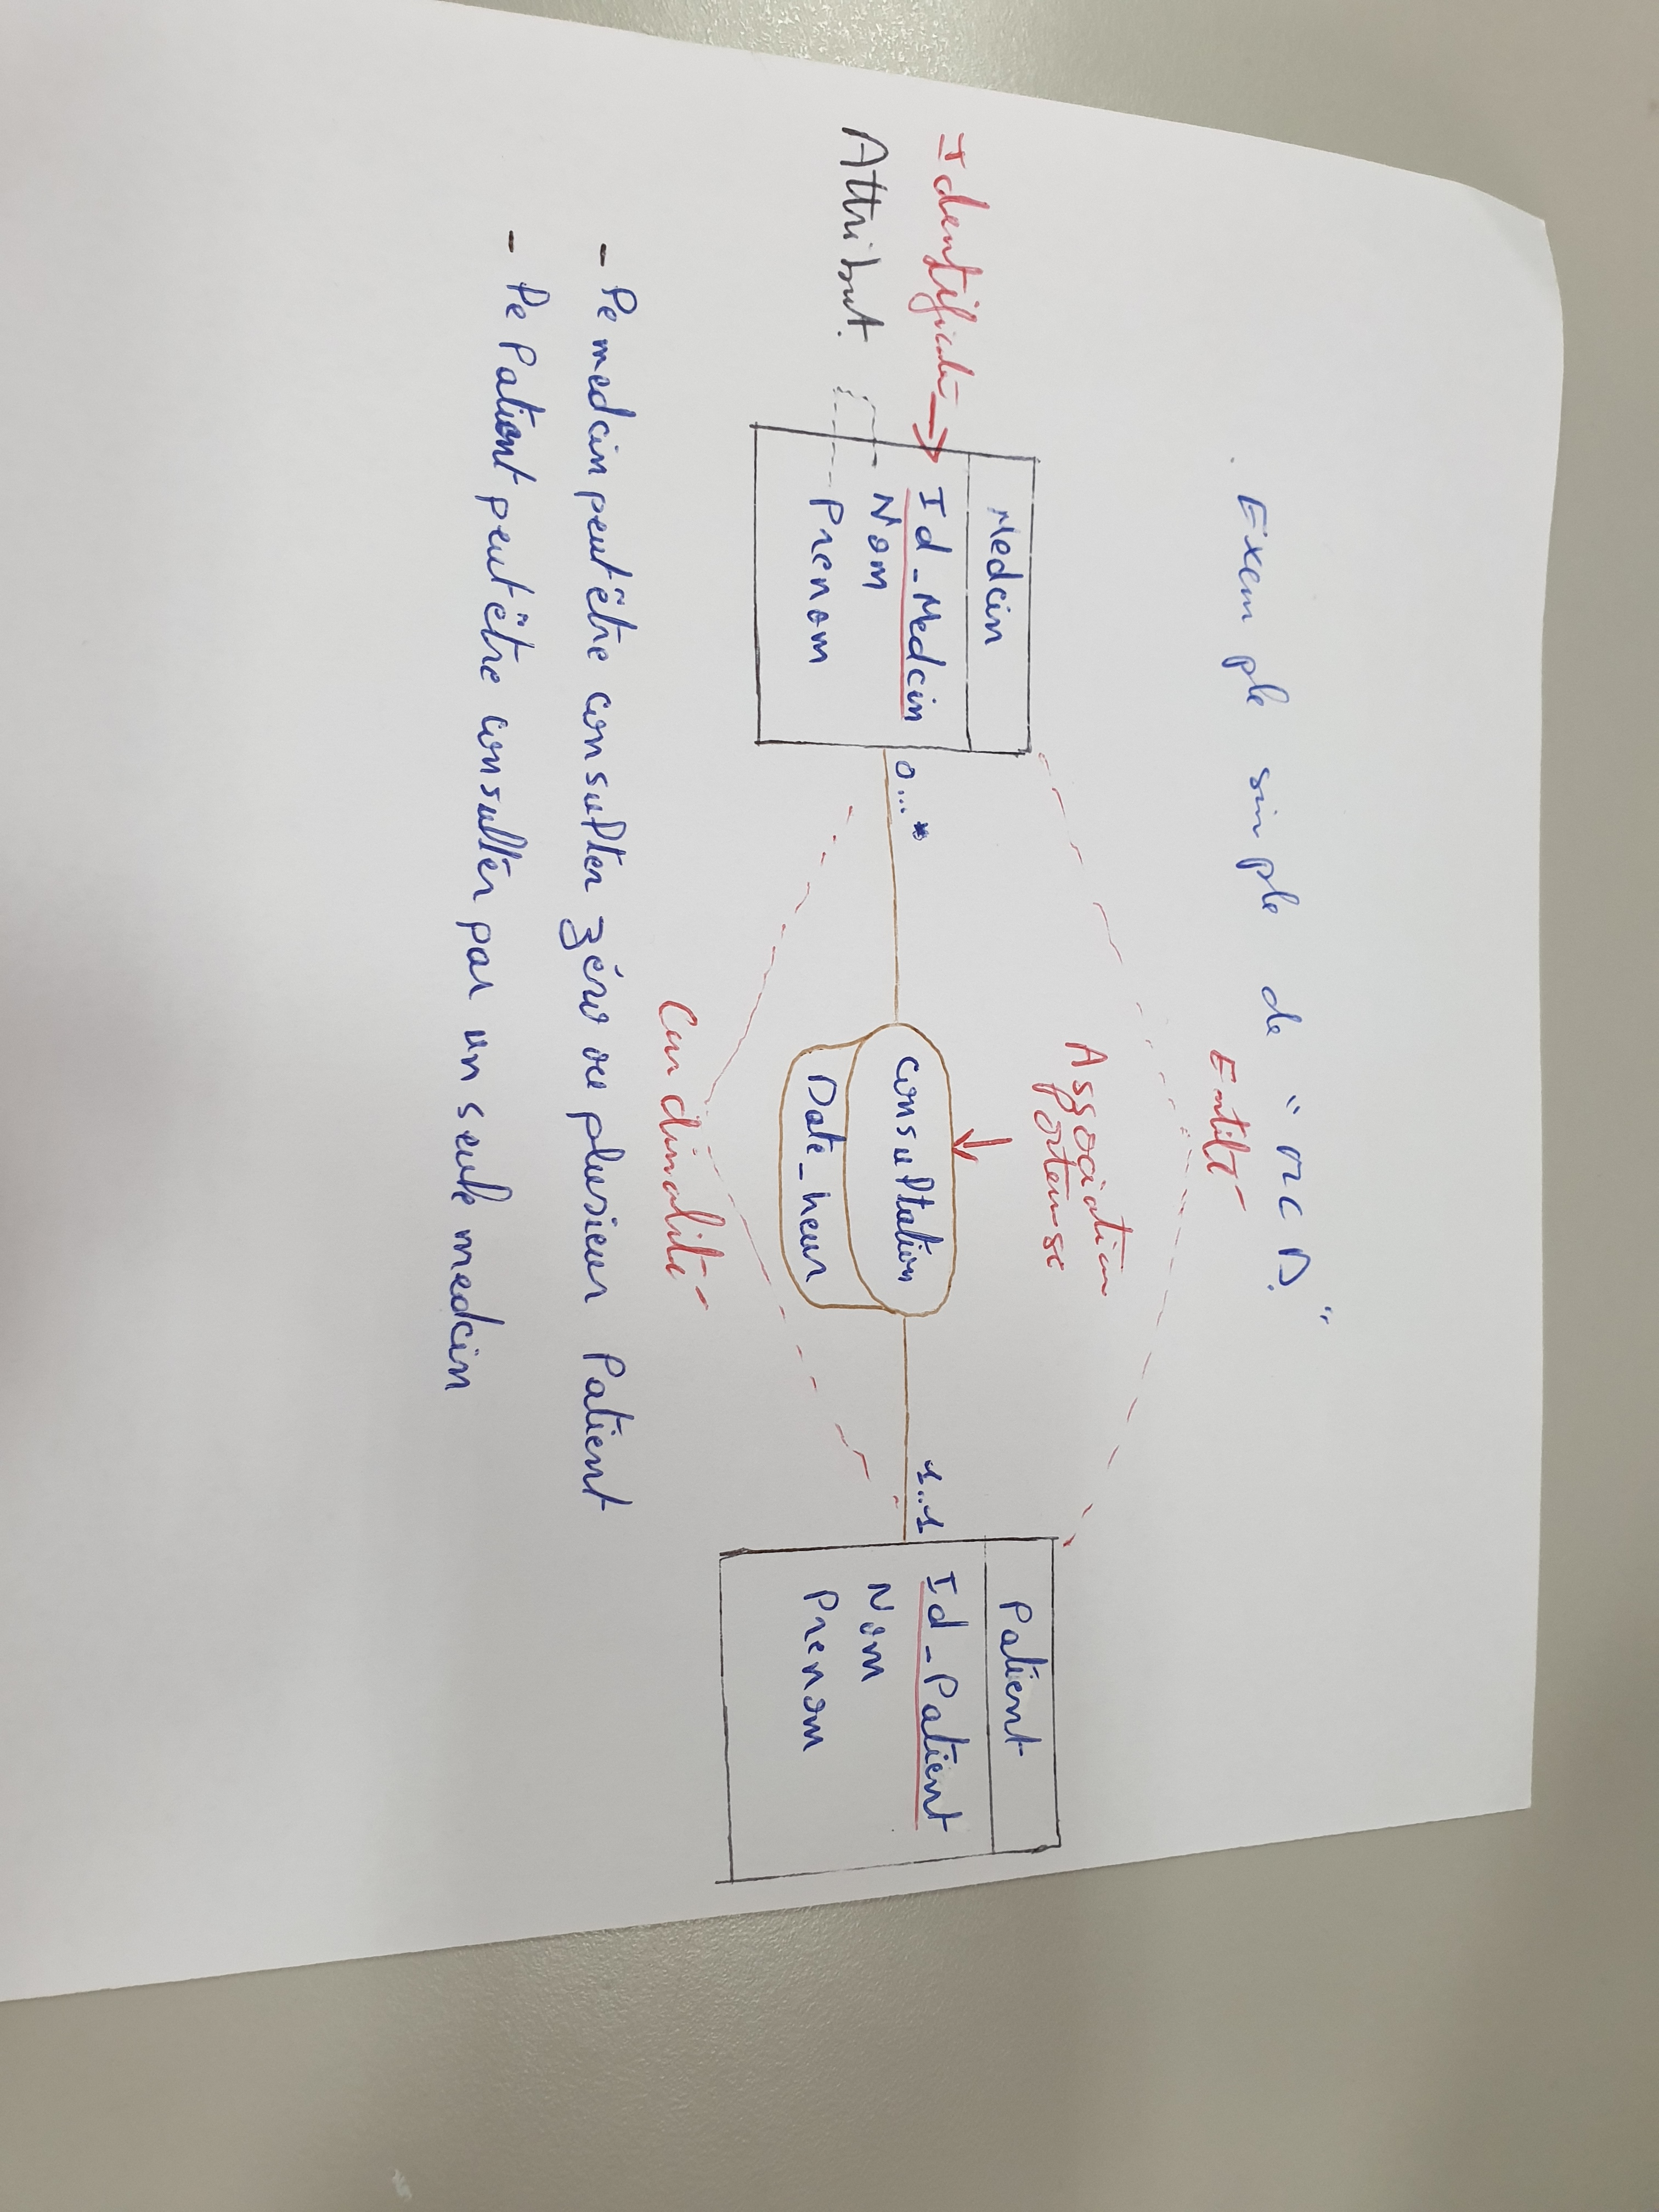 Exemple simple de "MCD."
Entité
Association
Porteuse
Medcin
Identifiant
Id_Medcin
Attribut
Nom
Prenom
0...*
Consultation
Date_heur
1..1
Patient
Id_Patient
Nom
Prenom
Cardinalité
- Le medcin peut être consulter zéro ou plusieur Patient
- Le Patient peut être consulter par un seule medcin